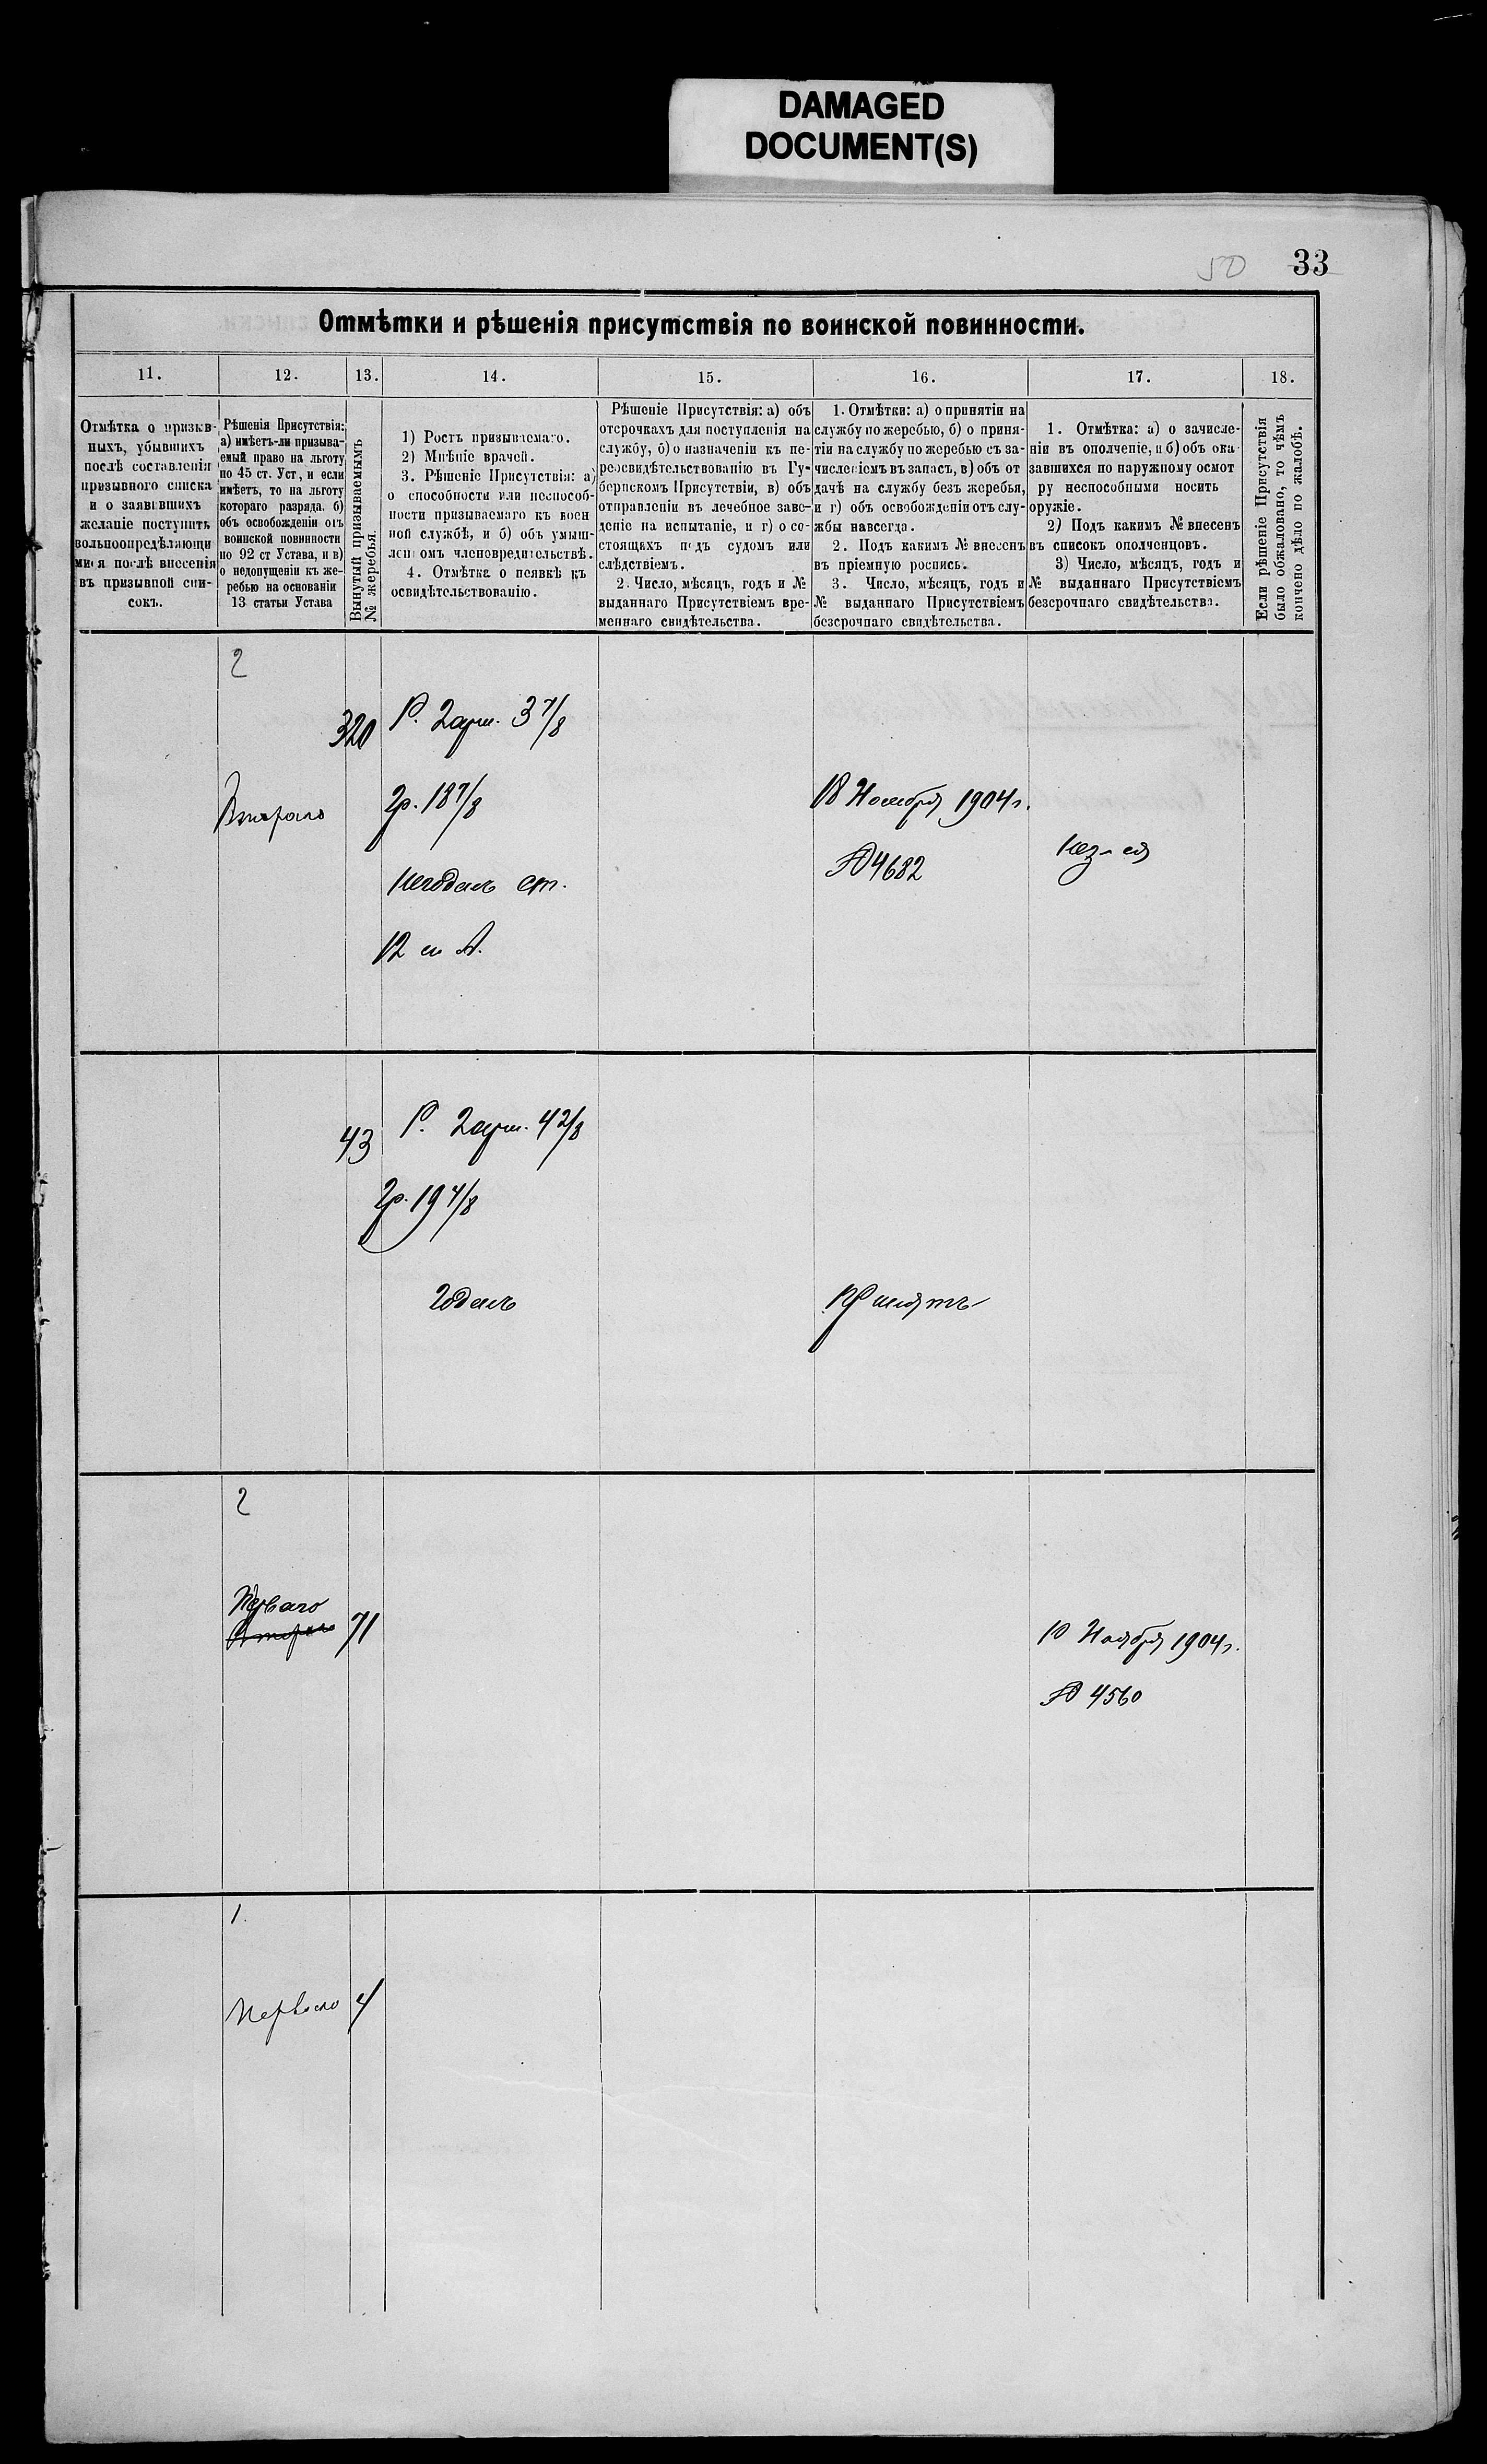 DAMAGED
DOCUMENT(S)
50 33
Отмѣтки и рѣшенія присутствія по воинской повинности.
11. 12. 13. 14. 15. 16. 17. 18.
Отмѣтка о призыв-
ныхъ, убывшихъ
послѣ составленія
призывного списка
и о заявившихъ
желаніе поступить
вольноопредѣляющи
мися послѣ внесенія
въ призывной спи-
сокъ.
Рѣшенія Присутствія:
а) имѣетъ-ли призыва-
емый право на льготу
по 45 ст. Уст, и если
имѣетъ, то на льготу
котораго разряда. б)
объ освобожденіи отъ
воинской повинности
по 92 ст Устава, и в)
о недопущеніи къ же-
ребью на основаніи
13 статьи Устава
Вынутый призываемымъ
№ жеребья.
1) Ростъ призываемаго.
2) Мнѣніе врачей.
3. Рѣшеніе Присутствія: а)
о способности или неспособ-
ности призываемаго къ воен
ной службѣ, и б) объ умыш-
ленномъ членовредительствѣ.
4. Отмѣтка о неявкѣ къ
освидѣтельствованію.
Рѣшеніе Присутствія: а) объ
отсрочкахъ для поступленія на
службу, б) о назначеніи къ пе-
реосвидѣтельствованію въ Гу-
бернскомъ Присутствіи, в) объ
отправленіи въ лечебное заве-
деніе на испытаніе, и г) о со-
стоящихъ подъ судомъ или
слѣдствіемъ.
2. Число, мѣсяцъ, годъ и №
выданнаго Присутствіемъ вре-
меннаго свидѣтельства.
1. Отмѣтки: а) о принятіи на
службу по жеребью, б) о приня-
тіи на службу по жеребью съ за-
численіемъ въ запасъ, в) объ от
дачѣ на службу безъ жеребья,
и г) объ освобожденіи отъ слу-
жбы навсегда.
2. Подъ какимъ № внесенъ
въ пріемную роспись.
3. Число, мѣсяцъ, годъ и
№ выданнаго Присутствіемъ
безсрочнаго свидѣтельства.
1. Отмѣтка: а) о зачисле-
ніи въ ополченіе, и б) объ ока
завшихся по наружному осмот
ру неспособными носить
оружіе.
2) Подъ какимъ № внесенъ
въ списокъ ополченцовъ.
3) Число, мѣсяцъ, годъ и
№ выданнаго Присутствіемъ
безсрочнаго свидѣтельства.
Если рѣшеніе Присутствія
было обжаловано, то чѣмъ
кончено дѣло по жалобѣ.
2
320
Р. 2 арш. 3 7/8
Втораго
гр. 18 7/8
18 Ноября 1904 г.
№ 4682
негоденъ ст.
12 л А.
43
Р. 2 арш. 4 2/8
гр. 19 4/8
годенъ
Принятъ
2
Перваго
Втораго
71
10 Ноября 1904 г.
№ 4560
1.
Перваго
4